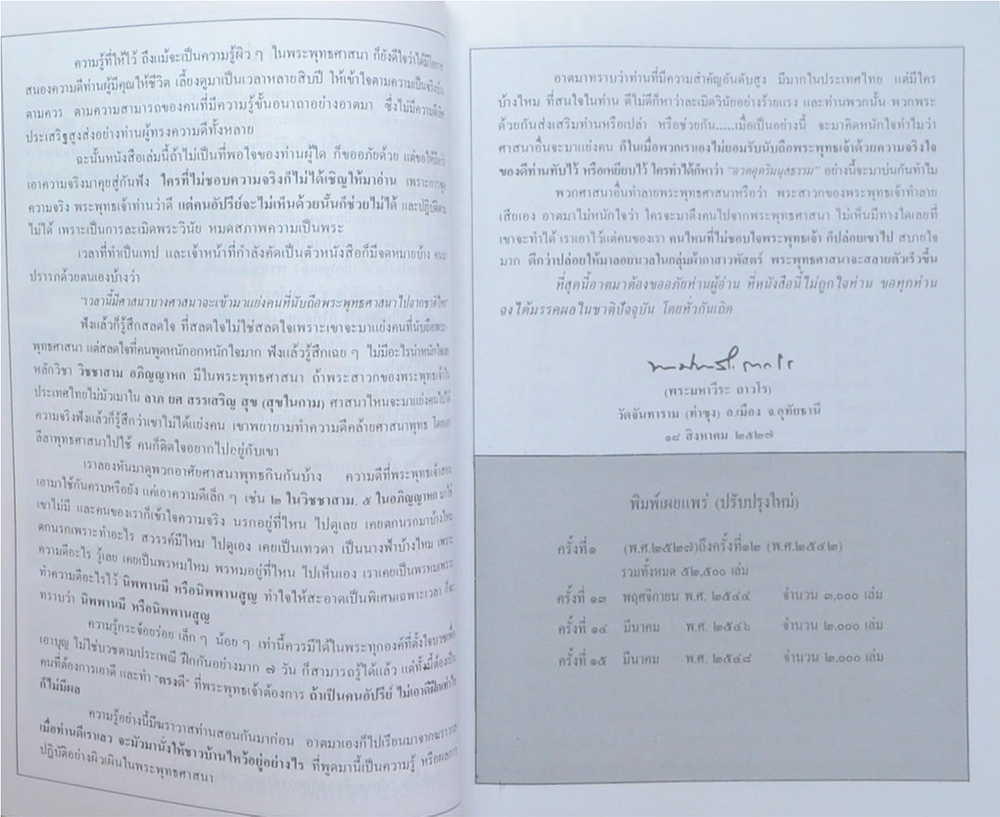 ความรู้ที่ให้ไว้ ถึงแม้จะเป็นความรู้ผิว ๆ ในพระพุทธศาสนา ก็ยังดีใจว่าได้มีโอกาส
สนองความดีท่านผู้มีคุณให้ชีวิต เลี้ยงดูมาเป็นเวลาหลายสิบปี ให้เข้าใจตามความเป็นจริง
ตามควร ตามความสามารถของคนที่มีความรู้ขั้นอนาถาอย่างอาตมา ซึ่งไม่มีความดี
ประเสริฐสูงส่งอย่างท่านผู้ทรงความดีทั้งหลาย
ฉะนั้นหนังสือเล่มนี้ถ้าไม่เป็นที่พอใจของท่านผู้ใด ก็ขออภัยด้วย แต่ขอให้
เอาความจริงมาคุยสู่กันฟัง ใครที่ไม่ชอบความจริงก็ไม่ได้เชิญให้มาอ่าน เพราะการ
ความจริง พระพุทธเจ้าท่านว่าดี แต่คนอัปรีย์จะไม่เห็นด้วยนั้นก็ช่วยไม่ได้ และปฏิบัติ
ไม่ได้ เพราะเป็นการละเมิดพระวินัย หมดสภาพความเป็นพระ
เวลาที่ทำเป็นเทป และเจ้าหน้าที่กำลังคัดเป็นตัวหนังสือก็มีจดหมายบ้าง
ปรารภด้วยตนเองบ้างว่า
"เวลานี้มีศาสนาบางศาสนาจะเข้ามาแย่งคนที่นับถือพระพุทธศาสนาไปจากชาติไทย"
ฟังแล้วก็รู้สึกสลดใจ ที่สลดใจไม่ใช่สลดใจเพราะเขาจะมาแย่งคนที่นับถือพระ-
พุทธศาสนา แต่สลดใจที่คนพูดหนักอกหนักใจมาก ฟังแล้วรู้สึกเฉย ๆ ไม่มีอะไรน่าหนักใจ
หลักวิชา วิชชาสาม อภิญญาหก มีในพระพุทธศาสนา ถ้าพระสาวกของพระพุทธเจ้าใน
ประเทศไทยไม่มัวเมาใน ลาภ ยศ สรรเสริญ สุข (สุขในกาม) ศาสนาไหนจะมาแย่งคนไปได้
ความจริงฟังแล้วก็รู้สึกว่าเขาไม่ได้แย่งคน เขาพยายามทำความดีคล้ายศาสนาพุทธ โดย
ลีลาพุทธศาสนาไปใช้ คนก็ติดใจอยากไปอยู่กับเขา
เราลองหันมาดูพวกอาศัยศาสนาพุทธกินกันบ้าง ความดีที่พระพุทธเจ้าสอน
เอามาใช้กันครบหรือยัง แค่เอาความดีเล็ก ๆ เช่น ๒ ในวิชชาสาม, ๕ ในอภิญญาหก มาใช้
เขาไม่มี และคนของเราก็เข้าใจความจริง นรกอยู่ที่ไหน ไปดูเลย เคยตกนรกมาบ้างไหม
ตกนรกเพราะทำอะไร สวรรค์มีไหม ไปดูเอง เคยเป็นเทวดา เป็นนางฟ้าบ้างไหม เพราะ
ความดีอะไร รู้เลย เคยเป็นพรหมไหม พรหมอยู่ที่ไหน ไปเห็นเอง เราเคยเป็นพรหมเพราะ
ทำความดีอะไรไว้ นิพพานมี หรือนิพพานสูญ ทำใจให้สะอาดเป็นพิเศษเฉพาะเวลา ก็จะ
ทราบว่า นิพพานมี หรือนิพพานสูญ
ความรู้กระจ้อยร่อย เล็ก ๆ น้อย ๆ เท่านี้ควรมีได้ในพระทุกองค์ที่ตั้งใจบวชเพื่อ
เอาบุญ ไม่ใช่บวชตามประเพณี ฝึกกันอย่างมาก ๗ วัน ก็สามารถรู้ได้แล้ว แต่ทั้งนี้ต้องเป็น
คนที่ต้องการเอาดี และทำ "ตรงดี" ที่พระพุทธเจ้าต้องการ ถ้าเป็นคนอัปรีย์ ไม่เอาดีฝึกเท่าไร
ก็ไม่มีผล
ความรู้อย่างนี้มีฆราวาสท่านสอนกันมาก่อน อาตมาเองก็ไปเรียนมาจากฆราวาส
เมื่อท่านดีเราเลว จะมัวมานั่งให้ชาวบ้านไหว้อยู่อย่างไร ที่พูดมานี้เป็นความรู้ หรือผลการ
ปฏิบัติอย่างผิวเผินในพระพุทธศาสนา
อาตมาทราบว่าท่านที่มีความสำคัญอันดับสูง มีมากในประเทศไทย แต่มีใคร
บ้างไหม ที่สนใจในท่าน ดีไม่ดีก็หาว่าละเมิดวินัยอย่างร้ายแรง และท่านพวกนั้น พวกพระ
ด้วยกันส่งเสริมท่านหรือเปล่า หรือช่วยกัน.....เมื่อเป็นอย่างนี้ จะมาคิดหนักใจทำไมว่า
ศาสนาอื่นจะมาแย่งคน ก็ในเมื่อพวกเราเองไม่ยอมรับนับถือพระพุทธเจ้าด้วยความจริงใจ
ของดีท่านทับไว้ หรือเหยียบไว้ ใครทำได้ก็หาว่า "อวดอุตริมนุสธรรม" อย่างนี้จะมาบ่นกันทำไม
พวกศาสนาอื่นทำลายพระพุทธศาสนาหรือว่า พระสาวกของพระพุทธเจ้าทำลาย
เสียเอง อาตมาไม่หนักใจว่า ใครจะมาดึงคนไปจากพระพุทธศาสนา ไม่เห็นมีทางใดเลยที่
เขาจะทำได้ เราเอาไว้แต่คนของเรา คนไหนที่ไม่ชอบใจพระพุทธเจ้า ก็ปล่อยเขาไป สบายใจ
มาก ดีกว่าปล่อยให้มาลอยนวลในกลุ่มผ้ากาสาวพัสตร์ พระพุทธศาสนาจะสลายตัวเร็วขึ้น
ที่สุดนี้อาตมาต้องขออภัยท่านผู้อ่าน ที่หนังสือนี้ไม่ถูกใจท่าน ขอทุกท่าน
จงได้มรรคผลในชาติปัจจุบัน โดยทั่วกันเถิด
(พระมหาวีระ ถาวโร)
วัดจันทาราม (ท่าซุง) อ.เมือง จ.อุทัยธานี
๑๘ สิงหาคม ๒๕๒๗
พิมพ์เผยแพร่ (ปรับปรุงใหม่)
ครั้งที่๑ (พ.ศ.๒๕๒๗)ถึงครั้งที่๑๒ (พ.ศ.๒๕๔๒)
รวมทั้งหมด ๕๒,๕๐๐ เล่ม
ครั้งที่ ๑๓ พฤศจิกายน พ.ศ. ๒๕๔๔ จำนวน ๓,๐๐๐ เล่ม
ครั้งที่ ๑๔ มีนาคม พ.ศ. ๒๕๔๖ จำนวน ๒,๐๐๐ เล่ม
ครั้งที่ ๑๕ มีนาคม พ.ศ. ๒๕๔๘ จำนวน ๒,๐๐๐ เล่ม